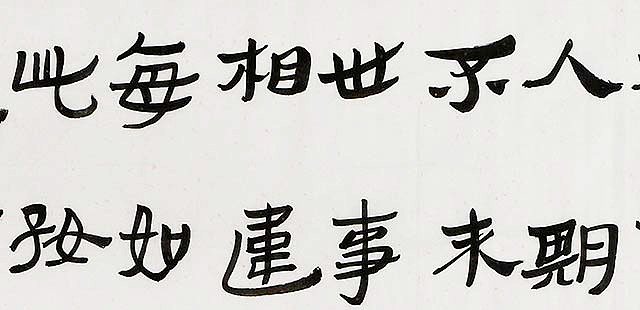 人期
不来
世事
相違
每如
此好